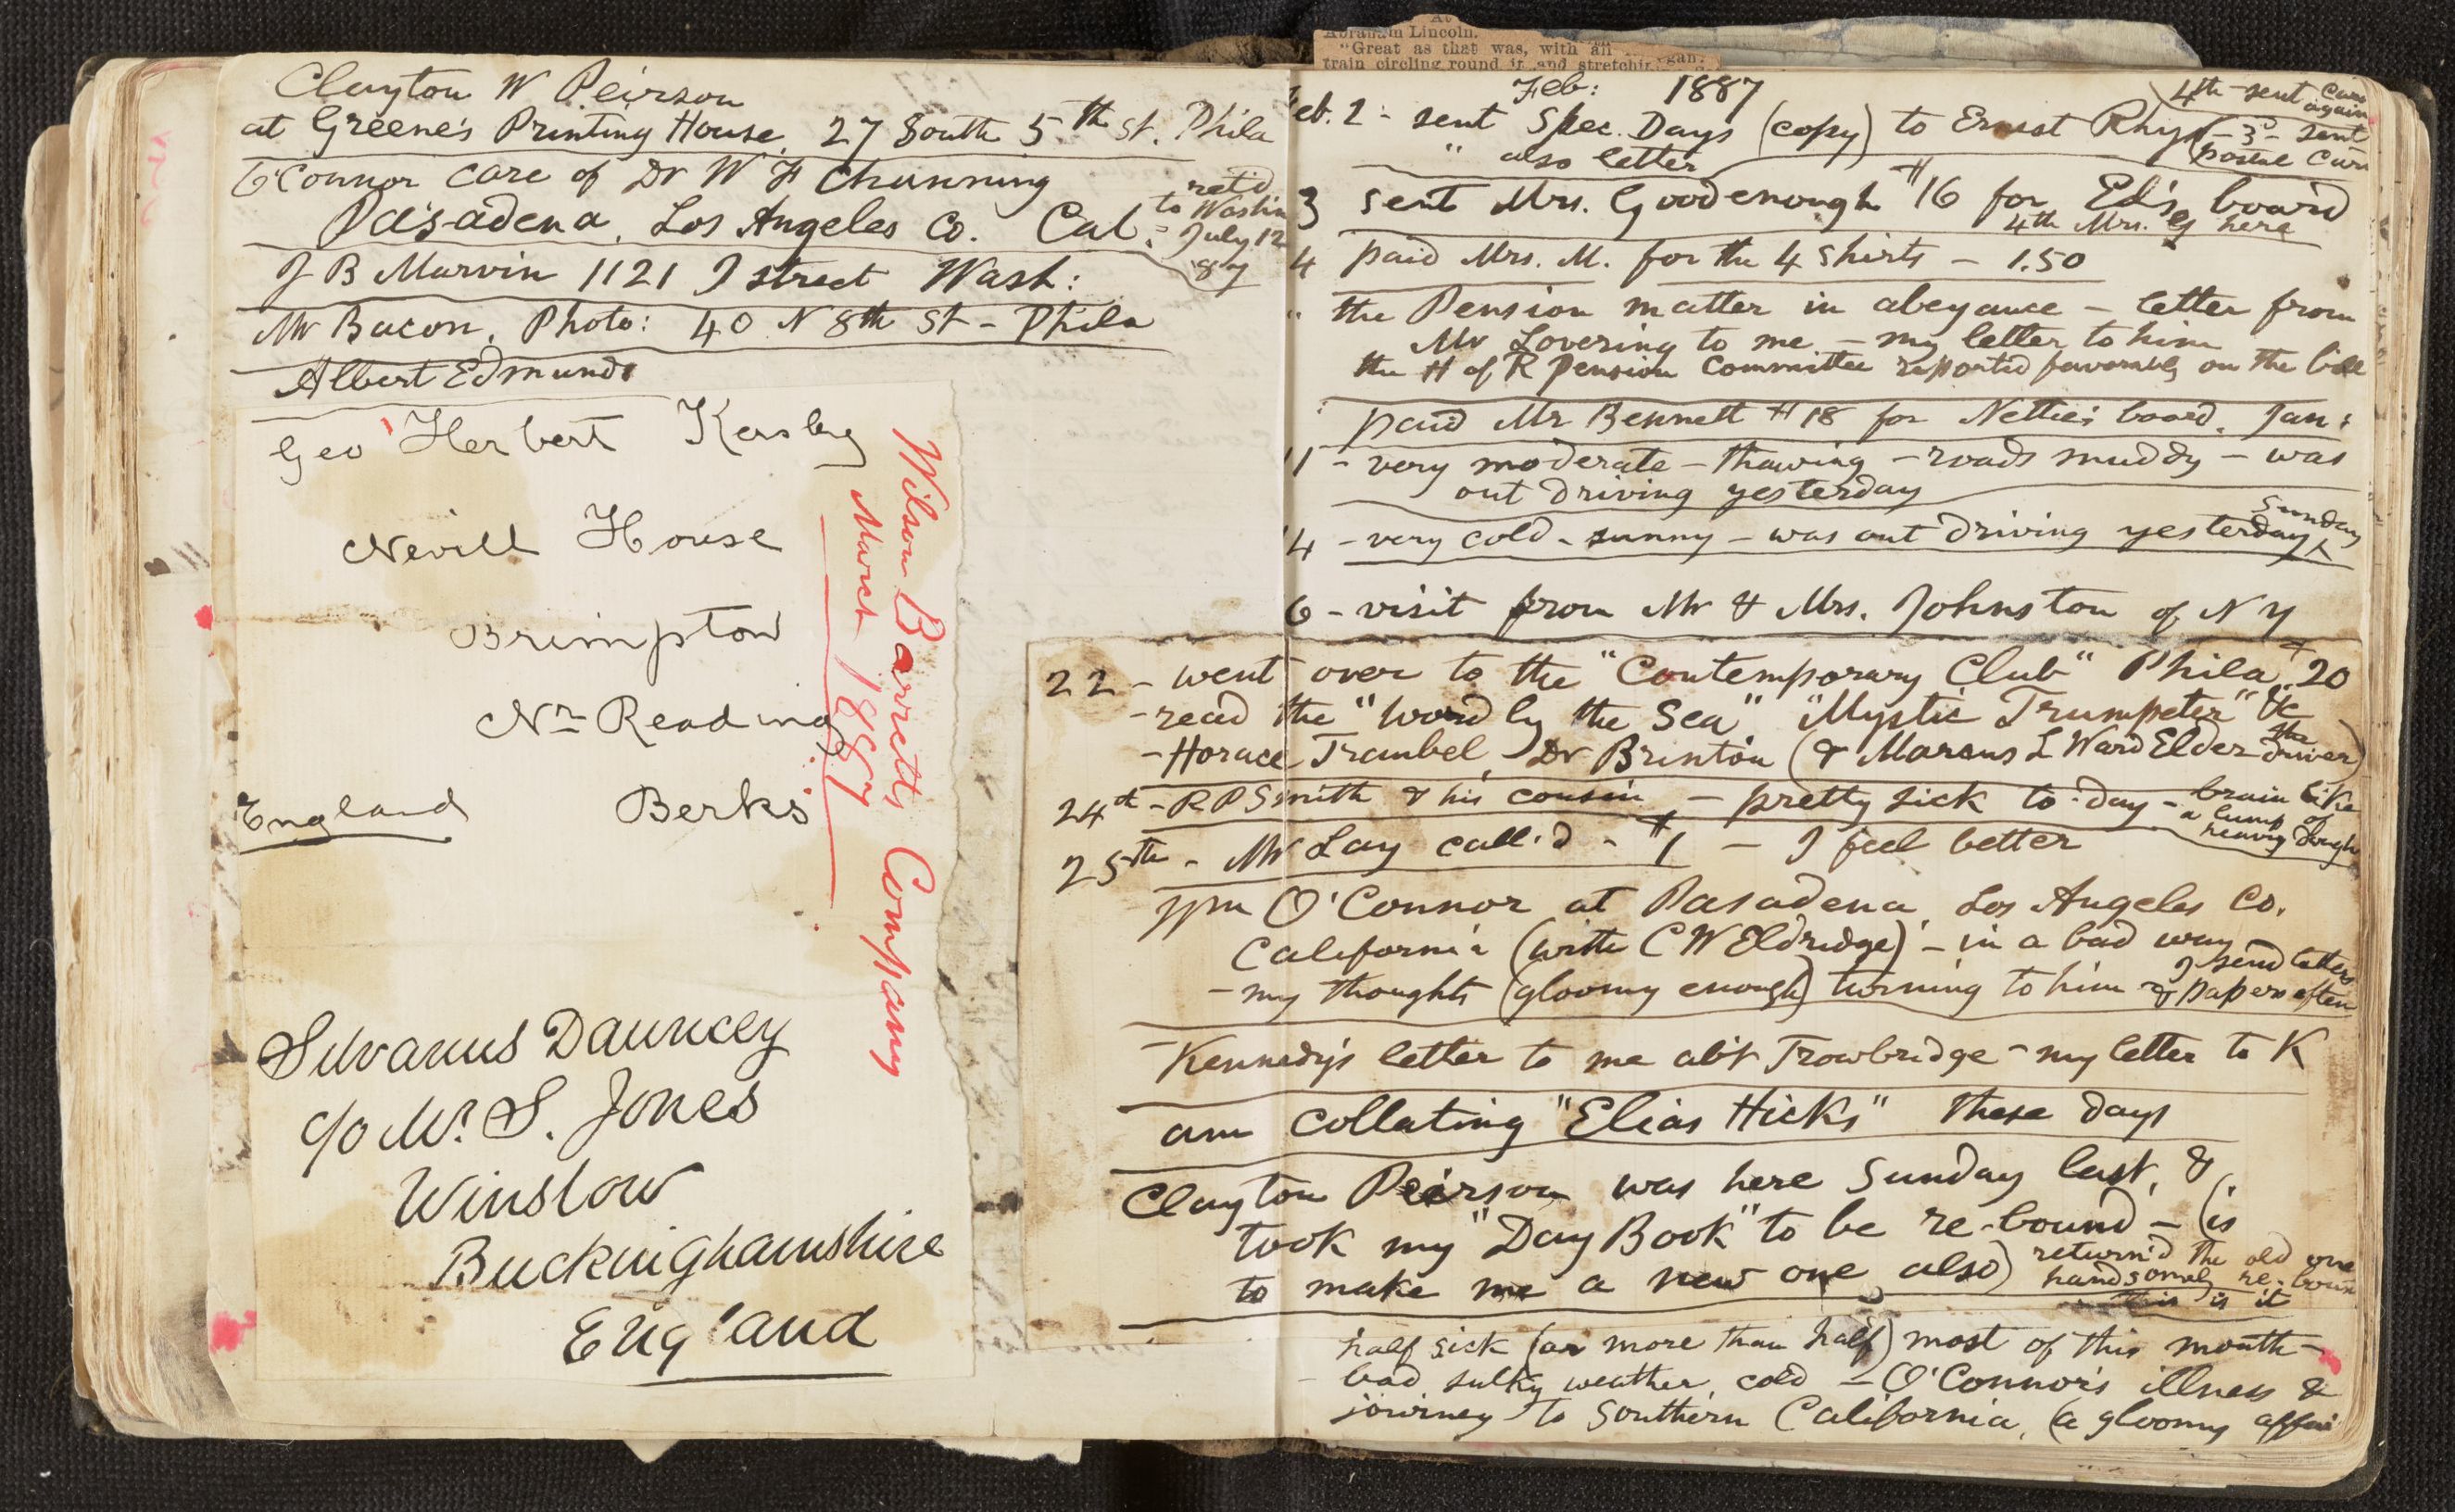 Clayton W Peirson
at Greene's Printing House, 27 South 5th st. Phila
O'Connor care of Dr W F Channing
Pasadena, Los Angeles Co. Cal:
ret'd
to Washin
July 12
'87
J B Marvin 1121 I street Wash:
Mr Bacon, Photo: 40 N 8th St - Phila
Albert Edmunds
Geo Herbert Kersley
Nevill House
Brimpton
Nr Reading
Berks
England
Wilson Barrett's Company
March 1887
Silvanus Dauncey
c/o Mr. S. Jones
Winslow
Buckinghamshire
England
Abraham Lincoln.
"Great as that was, with an
train circling round it and
Feb: 1887
Feb. 2 - sent Spec. Days (copy) to Ernest Rhys
" also letter
4th - sent
again
- 3d - sent
postal card
3 sent Mrs. Goodenough $16 for Ed's board
4th Mrs. G here
4 paid Mrs. M. for the 4 shirts - 1.50
" the Pension matter in abeyance - letter from
Mr Lovering to me - my letter to him
the H of R Pension Committee reported favorably on the bill
paid Mr Bennett $18 for Nettie's board, Jan:
11 - very moderate - thawing - roads muddy - was
out driving yesterday
14 - very cold - sunny - was out driving yesterday
Sunday
6 - visit from Mr & Mrs. Johnston of N Y
22 - went over to the "Contemporary Club" Phila $20
- read the "word by the Sea" "Mystic Trumpeter" &c
- Horace Traubel, Dr Brinton (& Marcus L Ward Elder the driver)
24th - R P Smith & his cousin - pretty sick to-day - brain like
a lump of
heavy dough
25th - Mr Lay call'd - $1 - I feel better
Wm O'Connor at Pasadena, Los Angeles Co.
California (with C W Eldridge) - in a bad way
- my thoughts (gloomy enough) turning to him
I send letters
& papers often
Kennedy's letter to me ab't Trowbridge - my letter to K
am collating "Elias Hicks" these days
Clayton Peirson was here Sunday last, &
took my "Day Book" to be re-bound - (is
to make me a new one also)
return'd the old one
handsomely re-bound
this is it
half sick (or more than half) most of this month -
bad sulky weather, cold - O'Connor's illness &
journey to Southern California, (a gloomy affair